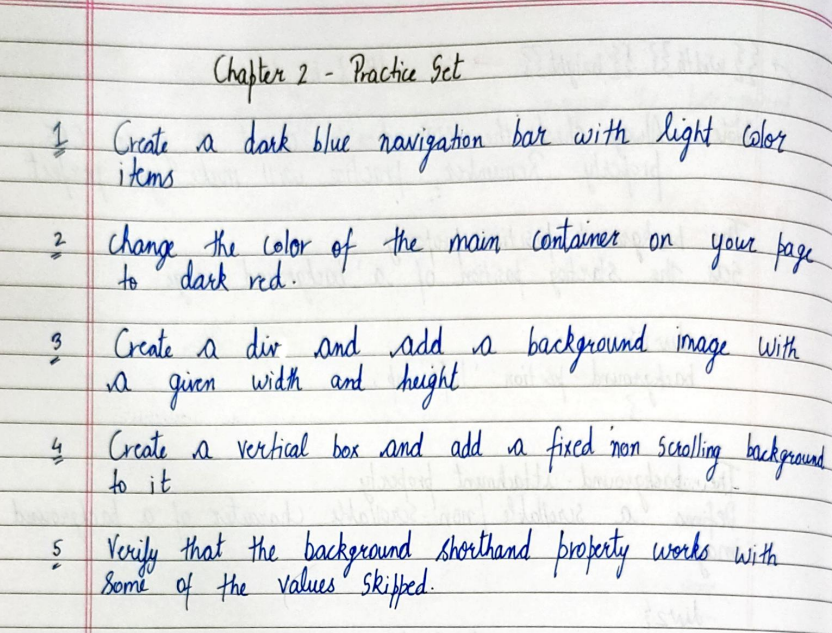 Chapter 2 - Practice Set
1 Create a dark blue navigation bar with light color
items
2 Change the color of the main container on your page
to dark red.
3 Create a div and add a background image with
a given width and height
4 Create a vertical box and add a fixed non scrolling background
to it
5 Verify that the background shorthand property works with
Some of the values skipped.